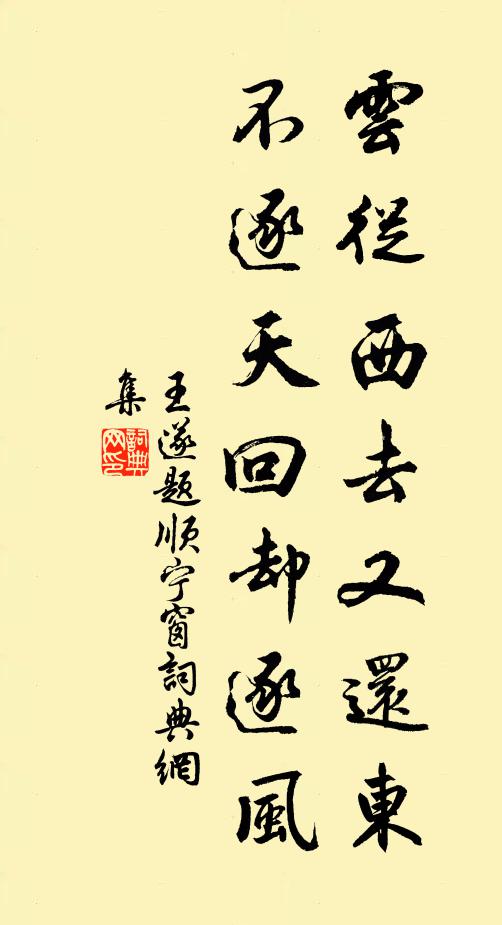 雲從西去又還東
不逐天回却逐風
王遂題順宁窗詞典網
集
詞典
网印